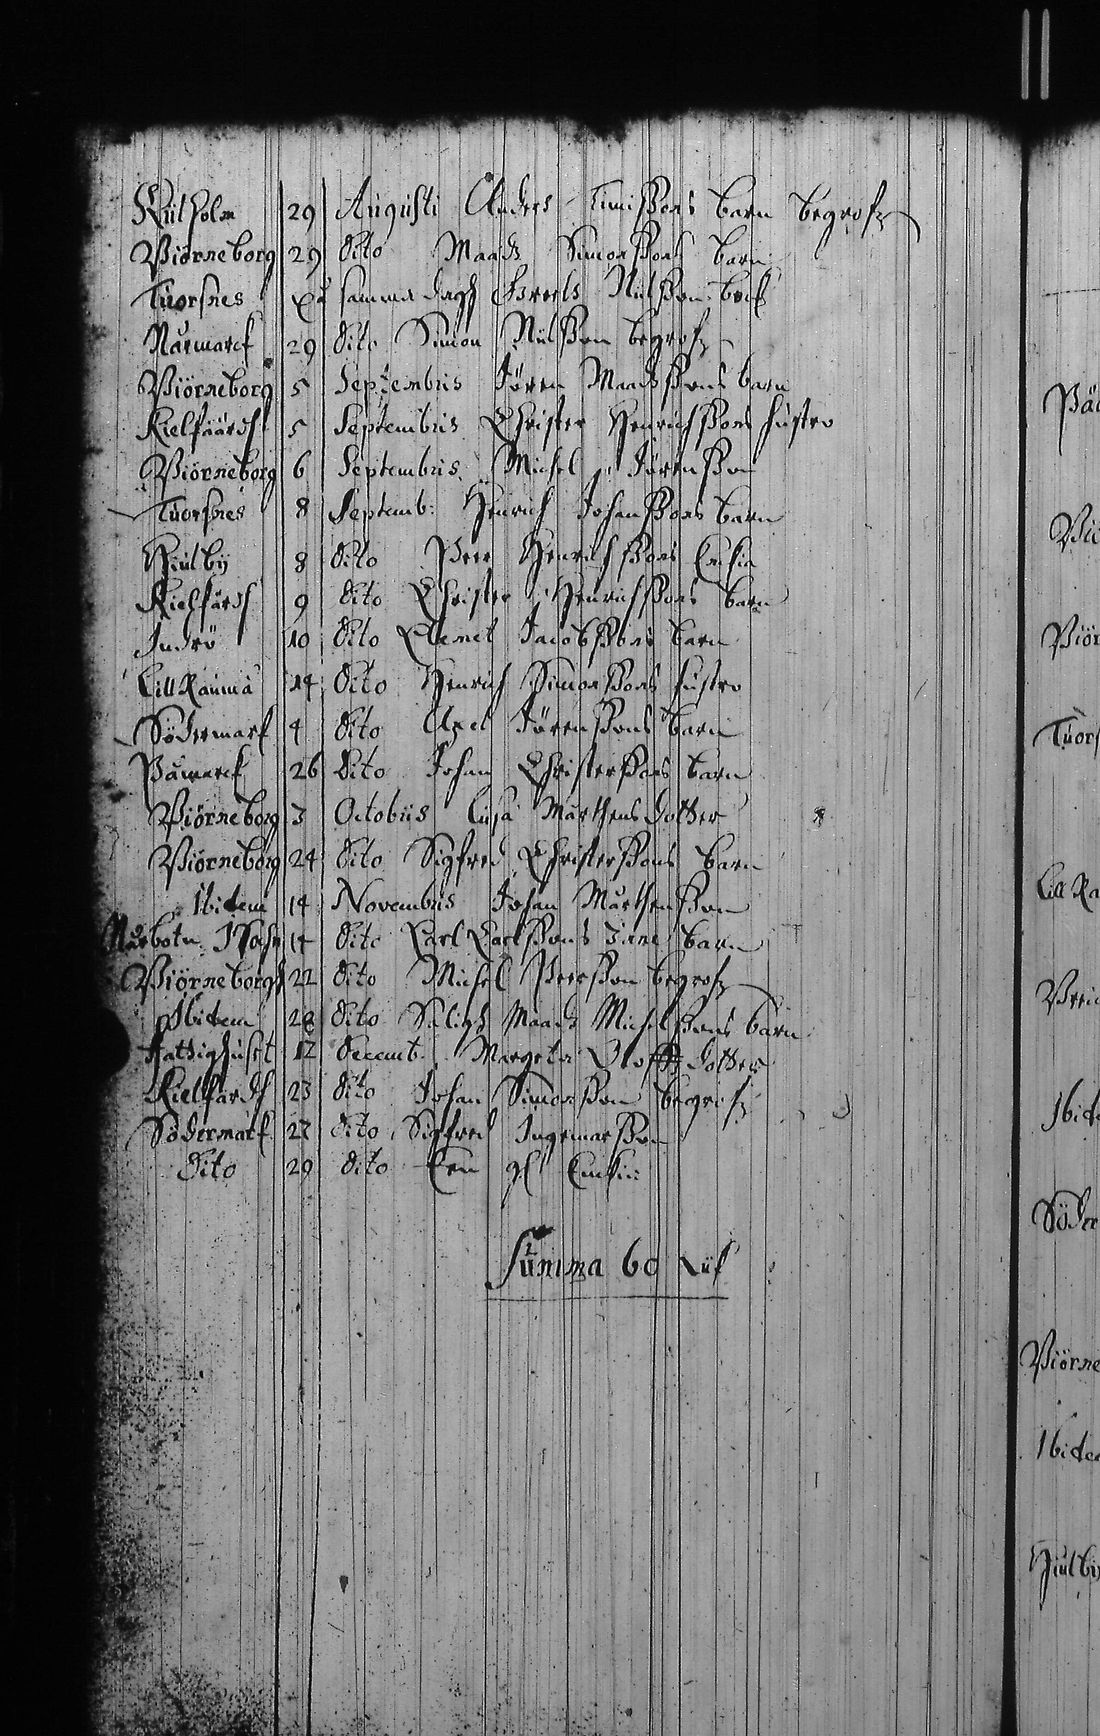 Kutholm 29 Augusti Anders Simißons barn begrofs
Biörneborg 29 Dito Mads Simonßons barn
Tuorsnes samma dagh Nilsson
Nårmarck 29 Dito Simon Nilsson begrofs
Biörneborg 5 Septembris Jören Madsßons barn
Kielfiärd 5 Septembris Christer Henrichßons hustro
Biörneborg 6 Septembris Michel Jörenßon
Tuorsnes 8 Septemb: Henrich Johanßons barn
Hiulby 8 Dito Peer Henrichßons Enkia
Kielfiärd 9 Dito Christer Henrichßons barn
Inderö 10 Dito Clemet Jacobßons barn
Lill Rauma 14 Dito Henrich Simonßons hustro
Södermark 4 Dito Axel Jörenßons barn
Påmarck 26 Dito Johan Christerßons barn
Biörneborg 3 Octobris Lisa Mårthens dotter
Biörneborg 24 Dito Sigfred Christerßons barn
Ibidem 14 Novembris Johan Mårthenßon
14 Dito Carl Carlßons barn
Biörneborgh 22 Dito Michel Peerßon begrofs
Ibidem 28 Dito Saligh Mads Michelßons barn
Fattighuset 12 Decemb. Margeta Oloffs dotter
Kielfiärd 23 Dito Johan Simonßon begrofs
Södermark 27 Dito Sigfred Ingemarßon
Dito 29 Dito Een gl Enkia
Summa 60 Lik
Biör
Tuors
Lill Ra
Ibid
Söder
Biörne
Ibidem
Hiulby